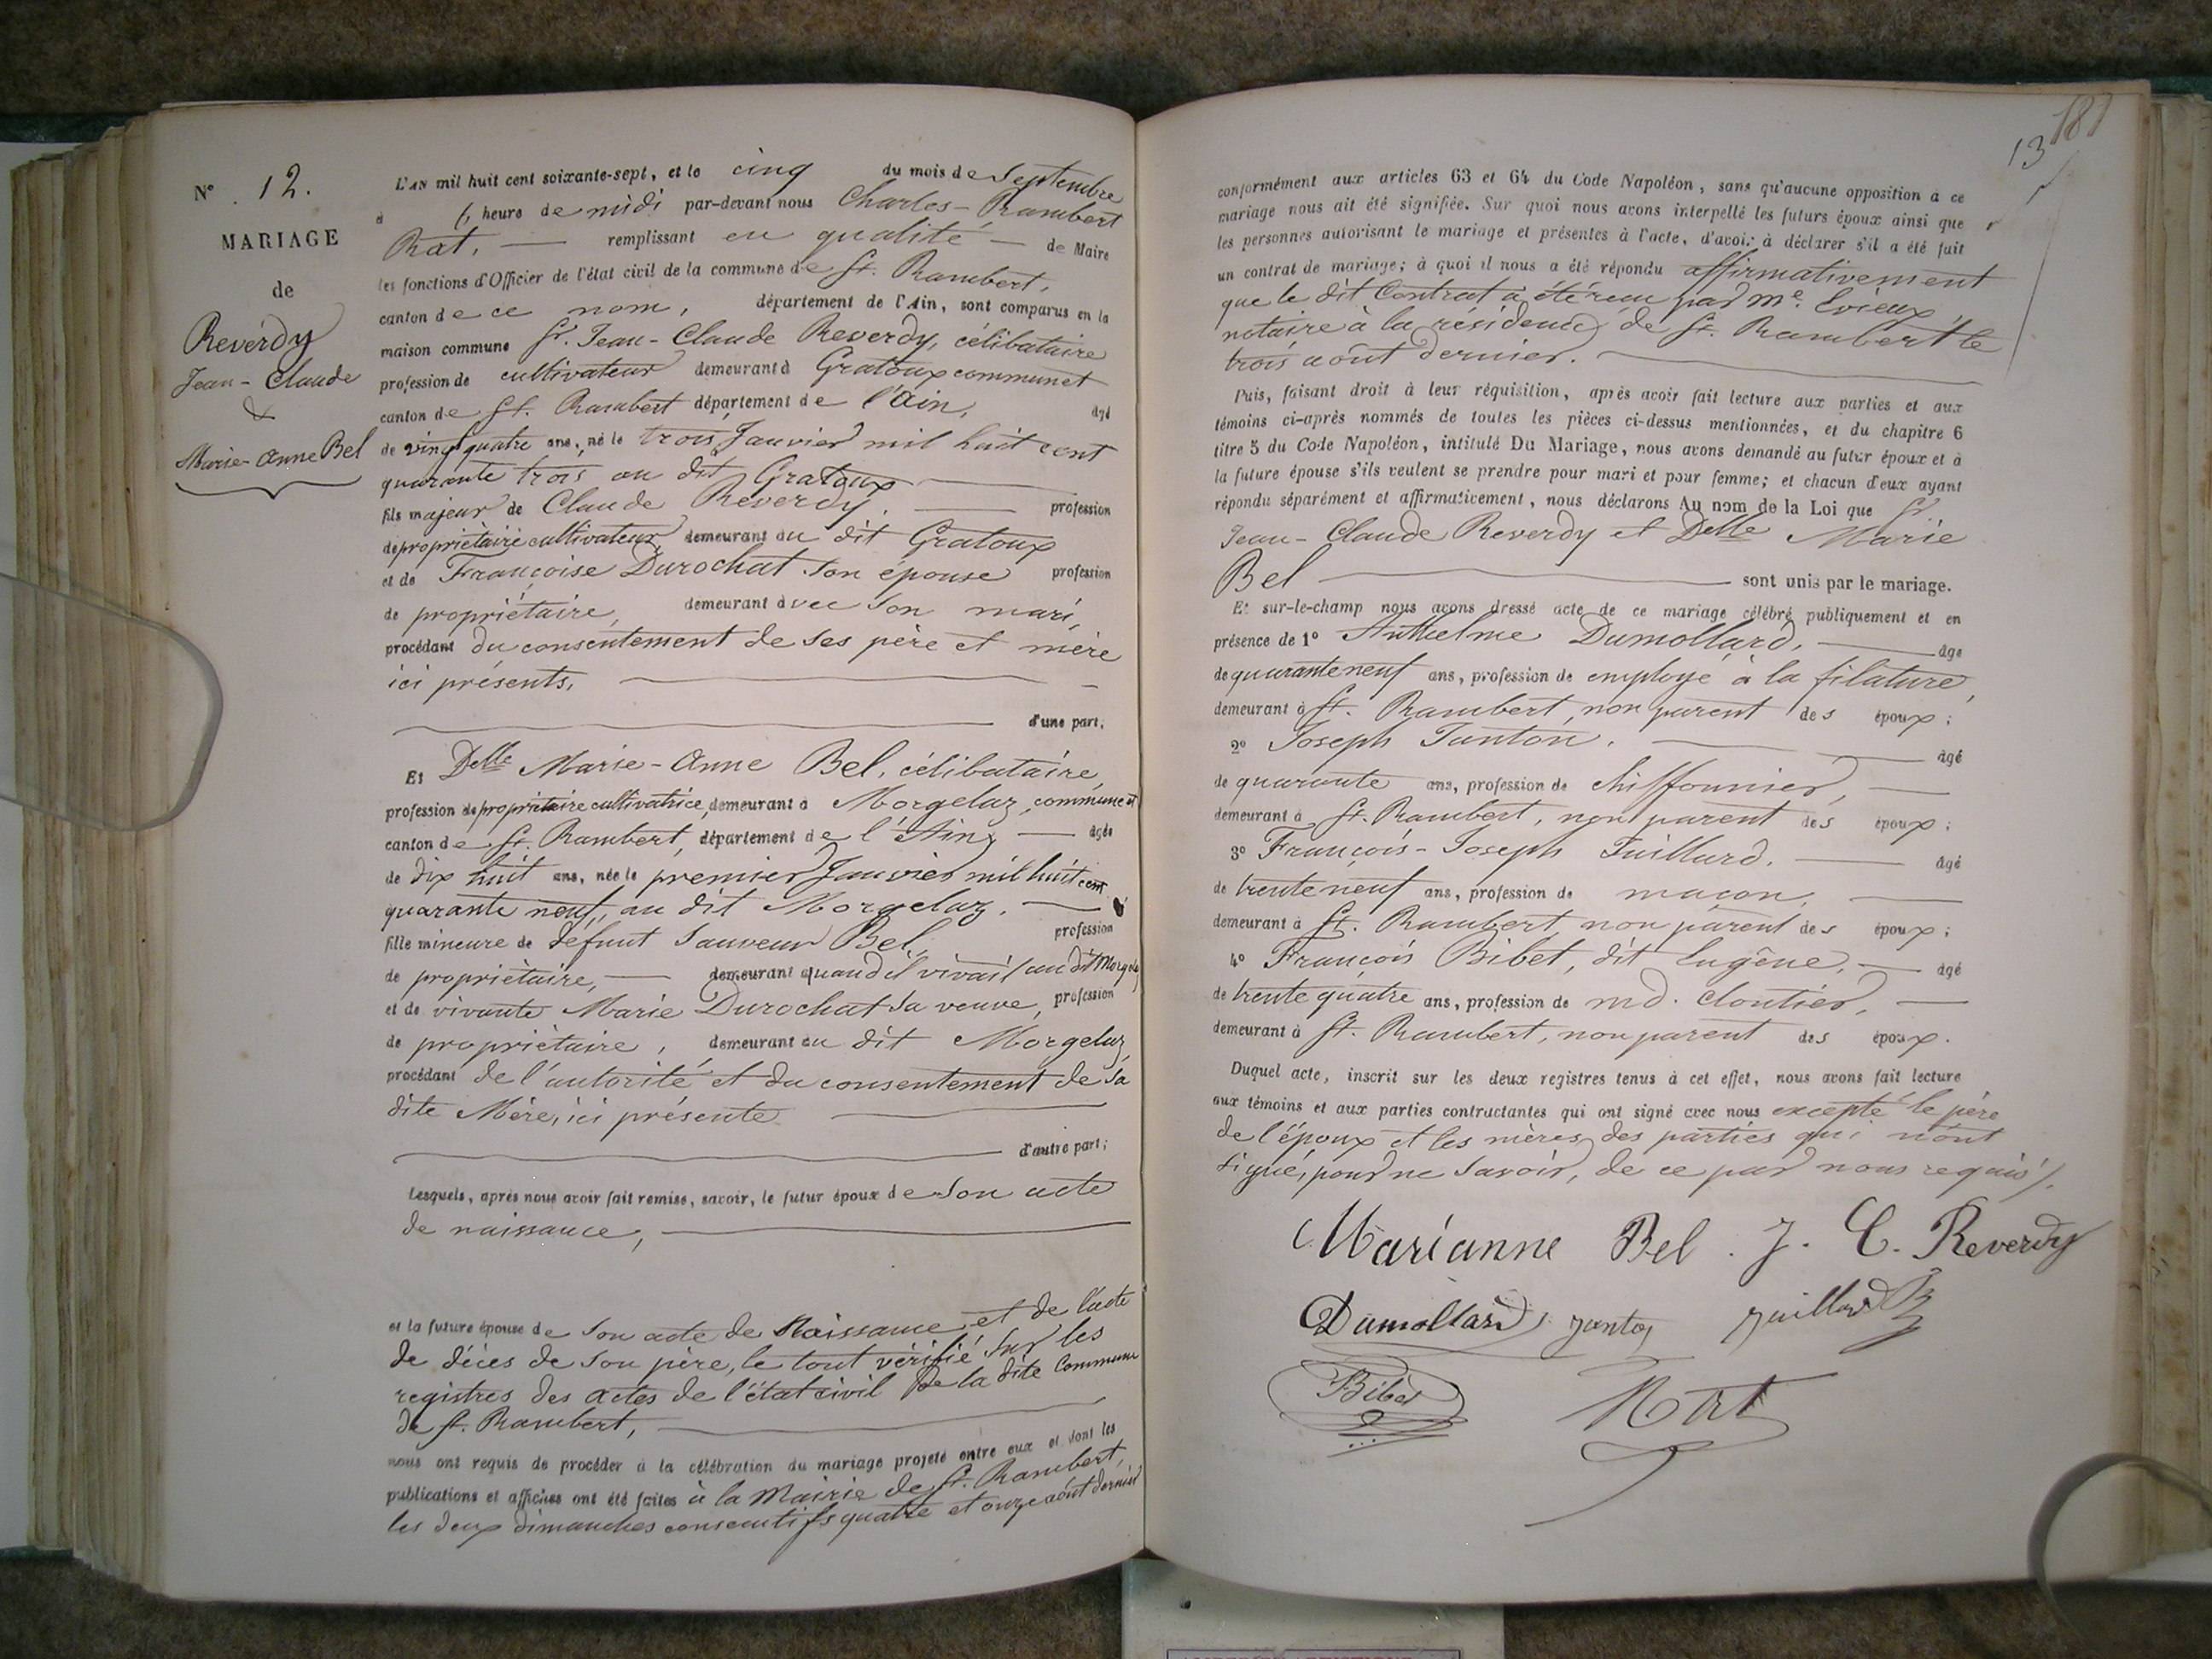 N° 12.
MARIAGE
de
Reverdy
Jean-Claude
&
Marie-Anne Bel
L'AN mil huit cent soixante-sept, et le cinq du mois de Septembre
à heure de midi par-devant nous Charles-Rambert
Rat, remplissant en qualité de Maire
les fonctions d'Officier de l'état civil de la commune de St. Rambert,
canton de ce nom, département de l'Ain, sont comparus en la
maison commune Sr. Jean-Claude Reverdy, célibataire
profession de cultivateur demeurant à Gratoux commune et
canton de St. Rambert département de l'Ain, âgé
de vingt quatre ans, né le trois Janvier mil huit cent
quarante trois au dit Gratoux
fils majeur de Claude Reverdy, profession
de propriétaire cultivateur demeurant au dit Gratoux
et de Françoise Durochat son épouse profession
de propriétaire, demeurant avec son mari,
procédant du consentement de ses père et mère
ici présents,
d'une part,
Et Delle Marie-Anne Bel, célibataire,
profession de propriétaire cultivatrice, demeurant à Morgelaz, commune et
canton de St. Rambert, département de l'Ain, âgée
de dix huit ans, née le premier Janvier mil huit cent
quarante neuf, au dit Morgelaz.
fille mineure de défunt Sauveur Bel, profession
de propriétaire, demeurant quand il vivait au dit Morgelaz
et de vivante Marie Durochat sa veuve, profession
de propriétaire, demeurant au dit Morgelaz,
procédant de l'autorité et du consentement de sa
dite Mère, ici présente
d'autre part;
Lesquels, après nous avoir fait remise, savoir, le futur époux de son acte
de naissance,
et la future épouse de son acte de Naissance et de l'acte
de décès de son père, le tout vérifié sur les
registres des actes de l'état civil de la dite Commune
de St. Rambert,
nous ont requis de procéder à la célébration du mariage projeté entre eux et dont les
publications et affiches ont été faites à la Mairie de St. Rambert,
les deux dimanches consecutifs quatre et onze août dernier
13 181
conformément aux articles 63 et 64 du Code Napoléon, sans qu'aucune opposition à ce
mariage nous ait été signifiée. Sur quoi nous avons interpellé les futurs époux ainsi que
les personnes autorisant le mariage et présentes à l'acte, d'avoir à déclarer s'il a été fait
un contrat de mariage; à quoi il nous a été répondu affirmativement
que le dit Contrat a été reçu par Me. Evieux,
notaire à la résidence de St. Rambert le
trois août dernier.
Puis, faisant droit à leur réquisition, après avoir fait lecture aux parties et aux
témoins ci-après nommés de toutes les pièces ci-dessus mentionnées, et du chapitre 6
titre 5 du Code Napoléon, intitulé Du Mariage, nous avons demandé au futur époux et à
la future épouse s'ils veulent se prendre pour mari et pour femme; et chacun d'eux ayant
répondu séparément et affirmativement, nous déclarons Au nom de la Loi que Sr
Jean-Claude Reverdy et Delle Marie
Bel sont unis par le mariage.
Et sur-le-champ nous avons dressé acte de ce mariage célébré publiquement et en
présence de 1° Anthelme Dumollard, âge
de quarante neuf ans, profession de employé à la filature,
demeurant à St. Rambert, non parent des époux;
2° Joseph Janton, âgé
de quarante ans, profession de chiffonnier,
demeurant à St. Rambert, non parent des époux;
3° François-Joseph Juillard. âgé
de trente neuf ans, profession de maçon,
demeurant à St. Rambert, non parent des époux;
4° François Bibet, dit Eugène, âgé
de trente quatre ans, profession de md. cloutier,
demeurant à St. Rambert, non parent des époux.
Duquel acte, inscrit sur les deux registres tenus à cet effet, nous avons fait lecture
aux témoins et aux parties contractantes qui ont signé avec nous excepté le père
de l'époux et les mères des parties qui n'ont
signé, pour ne savoir, de ce par nous requis/.
Marianne Bel . J. C. Reverdy
Dumollard Janton Juillard
Bibet Rat